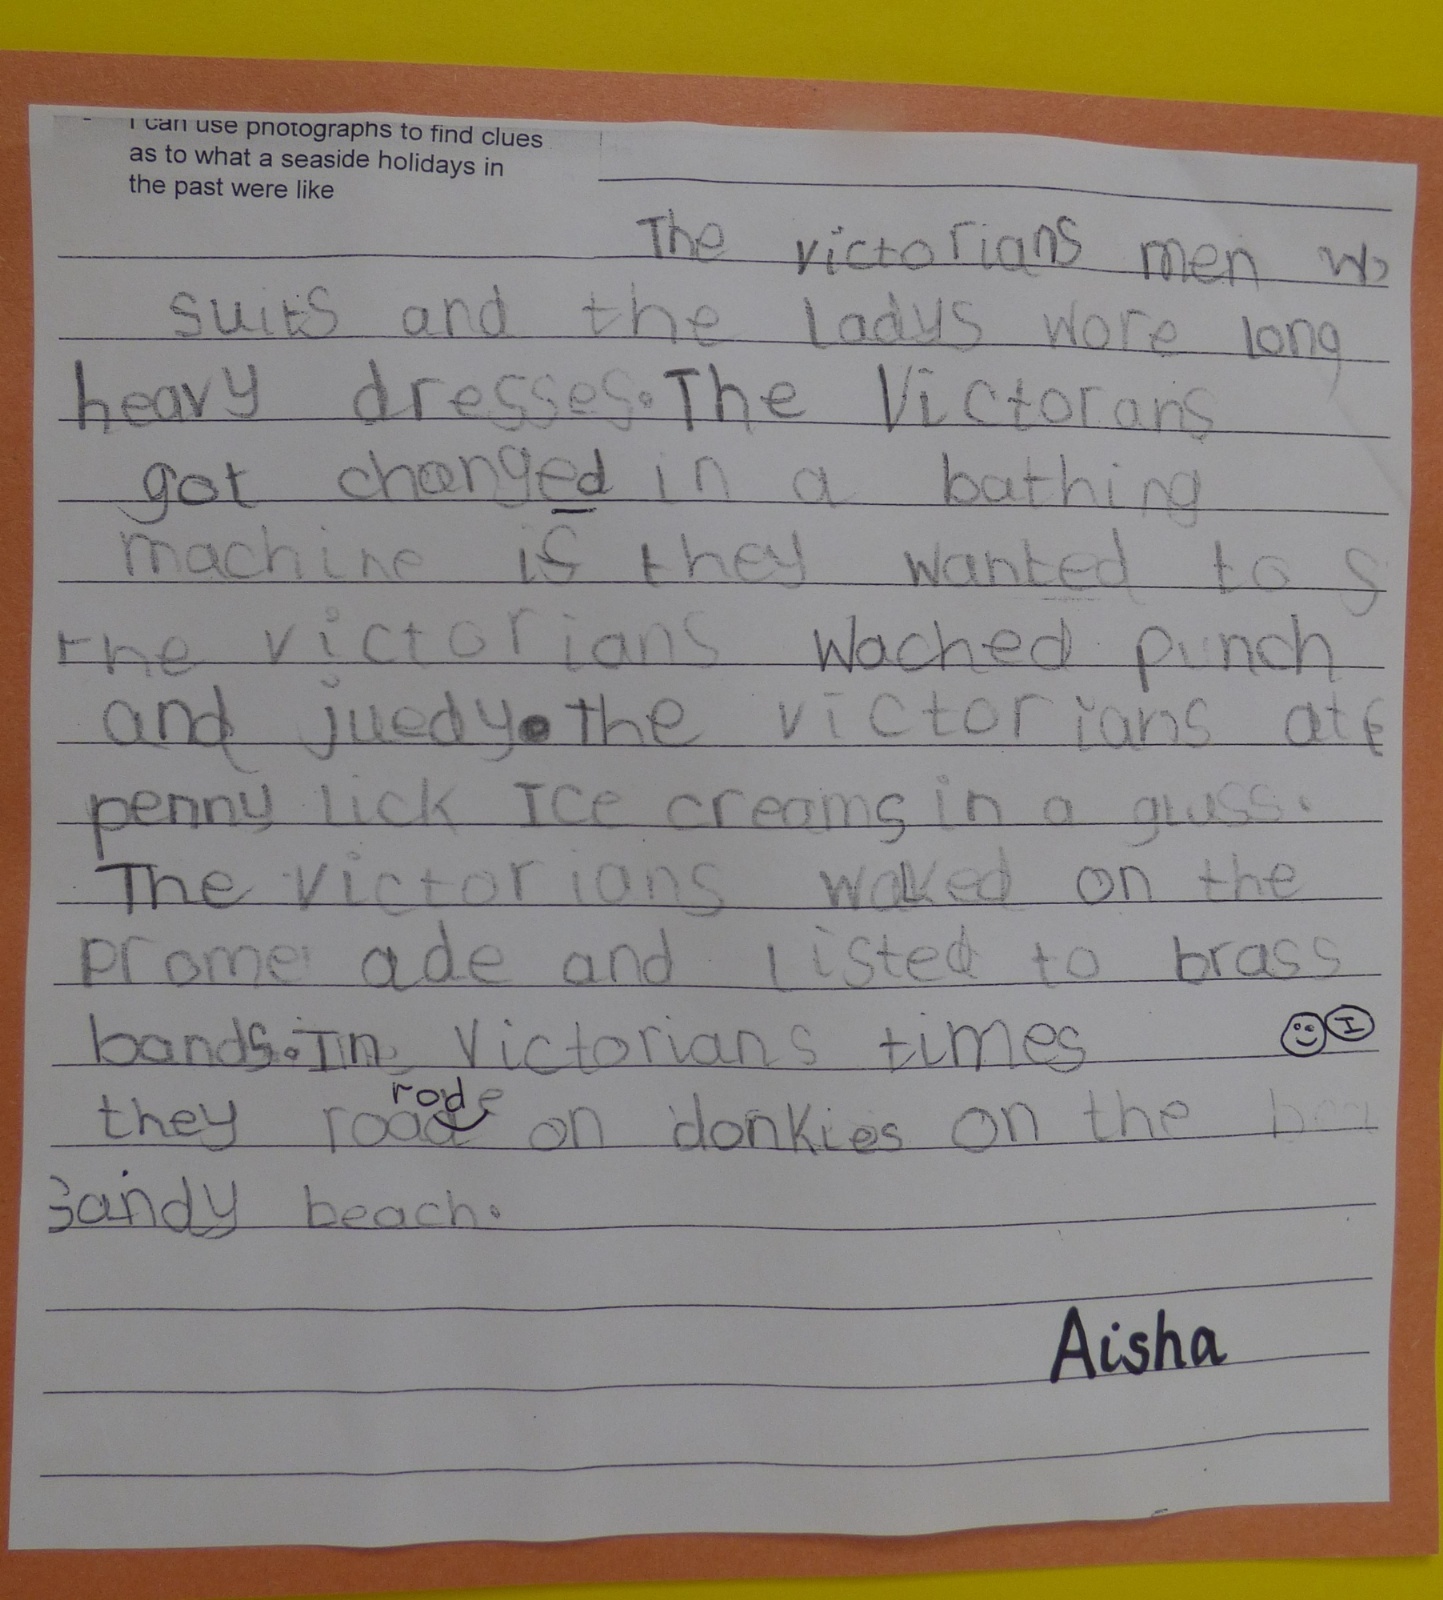 I can use photographs to find clues
as to what a seaside holidays in
the past were like
The victorians men
suits and the Ladys wore long
heavy dresses. The Victorans
got changed in a bathing
machine is they wanted to
the victorians wached punch
and juedy. the victorians ate
penny lick Ice creams in a gluss.
The victorians walked on the
prome ade and listed to brass
bands. In Victorians times
I
rode
they road on donkies on the bea
sandy beach.
Aisha